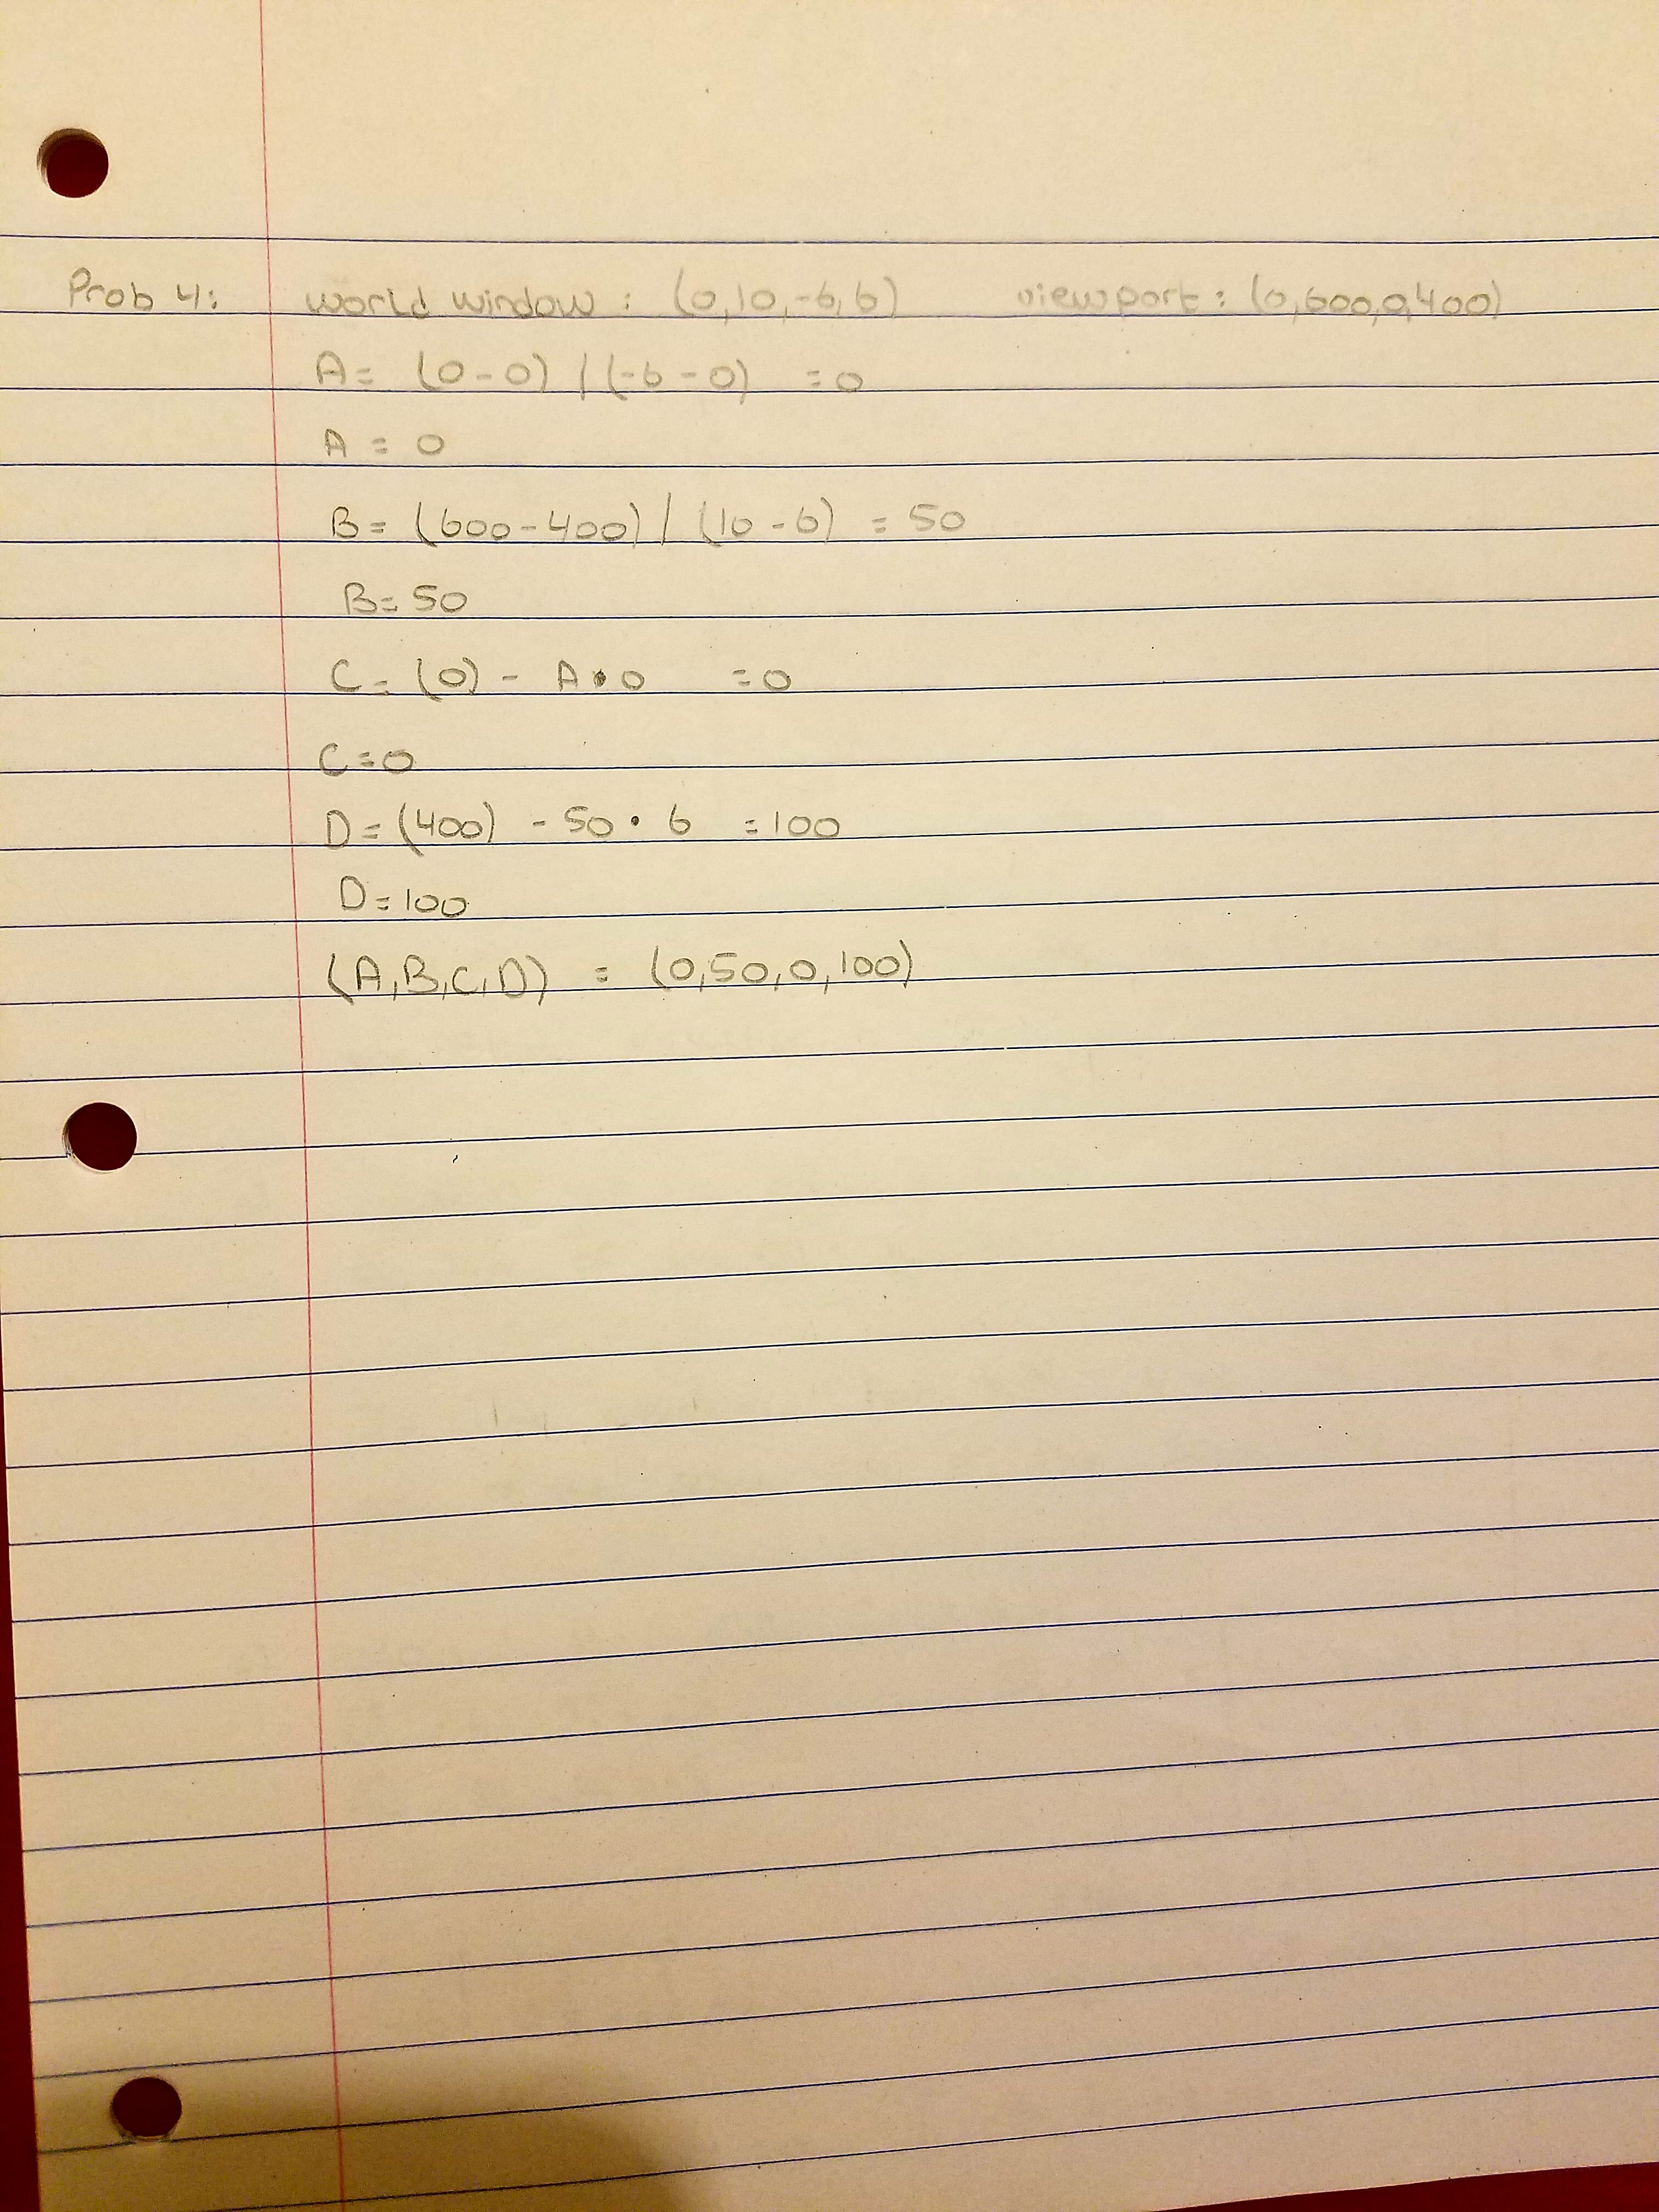 Prob 4: world window : (0,10,-6,6) viewport : (0,600,0,400)
A = (0-0) / (-6-0) = 0
A = 0
B = (600-400) / (10-6) = 50
B = 50
C = (0) - A•0 = 0
C = 0
D = (400) - 50 • 6 = 100
D = 100
(A,B,C,D) = (0,50,0,100)